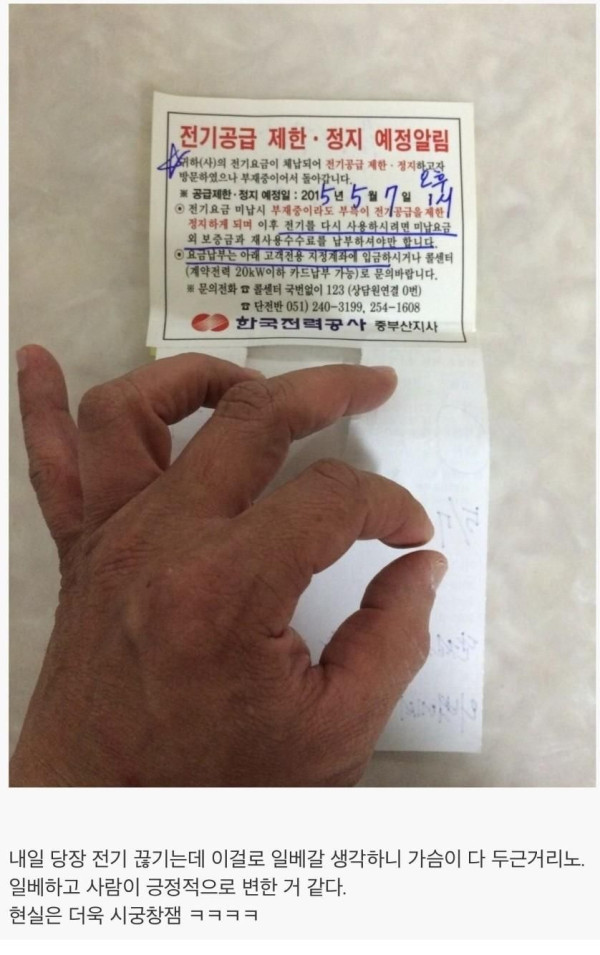 전기공급 제한 · 정지 예정알림
귀하(사)의 전기요금이 체납되어 전기공급 제한 · 정지하고자
방문하였으나 부재중이어서 돌아갑니다.
※ 공급제한·정지 예정일 : 2015년 5월 7일 오후 1시
⊙ 전기요금 미납시 부재중이라도 부득이 전기공급을 제한
정지하게 되며 이후 전기를 다시 사용하시려면 미납요금
외 보증금과 재사용수수료를 납부하셔야만 합니다.
⊙ 요금납부는 아래 고객전용 지정계좌에 입금하시거나 콜센터
(계약전력 20kW이하 카드납부 가능)로 문의바랍니다.
※ 문의전화 ☎ 콜센터 국번없이 123 (상담원연결 0번)
☎ 단전반 051) 240-3199, 254-1608
한국전력공사 중부산지사
내일 당장 전기 끊기는데 이걸로 일베갈 생각하니 가슴이 다 두근거리노.
일베하고 사람이 긍정적으로 변한 거 같다.
현실은 더욱 시궁창잼 ㅋㅋㅋㅋ